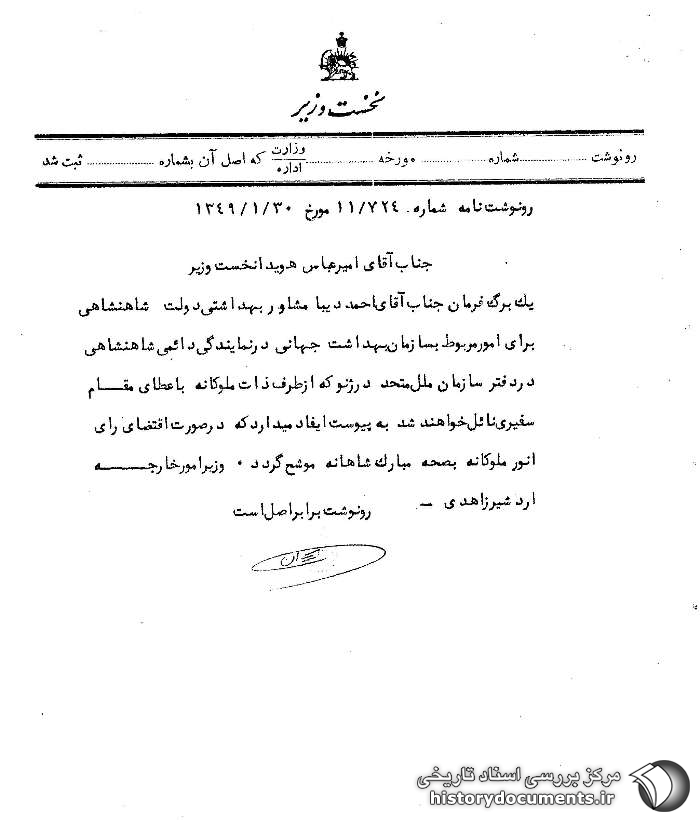 نخست وزیر
رونوشت ............ شماره ............ مورخه ............ وزارت / اداره که اصل آن بشماره ............ ثبت شد
رونوشت نامه شماره ۱۱/۷۲۴ مورخ ۱۳۴۹/۱/۳۰
جناب آقای امیرعباس هویدا نخست وزیر
یك برگ فرمان جناب آقای احمد دیبا مشاور بهداشتی دولت شاهنشاهی
برای امور مربوط بسازمان بهداشت جهانی در نمایندگی دائمی شاهنشاهی
در دفتر سازمان ملل متحد در ژنو که از طرف ذات ملوکانه باعطای مقام
سفیری نائل خواهند شد به پیوست ایفاد میدارد که در صورت اقتضای رای
انور ملوکانه بصحه مبارك شاهانه موشح گردد ۰ وزیر امور خارجه
اردشیر زاهدی – رونوشت برابر اصل است
مرکز بررسی اسناد تاریخی
historydocuments.ir